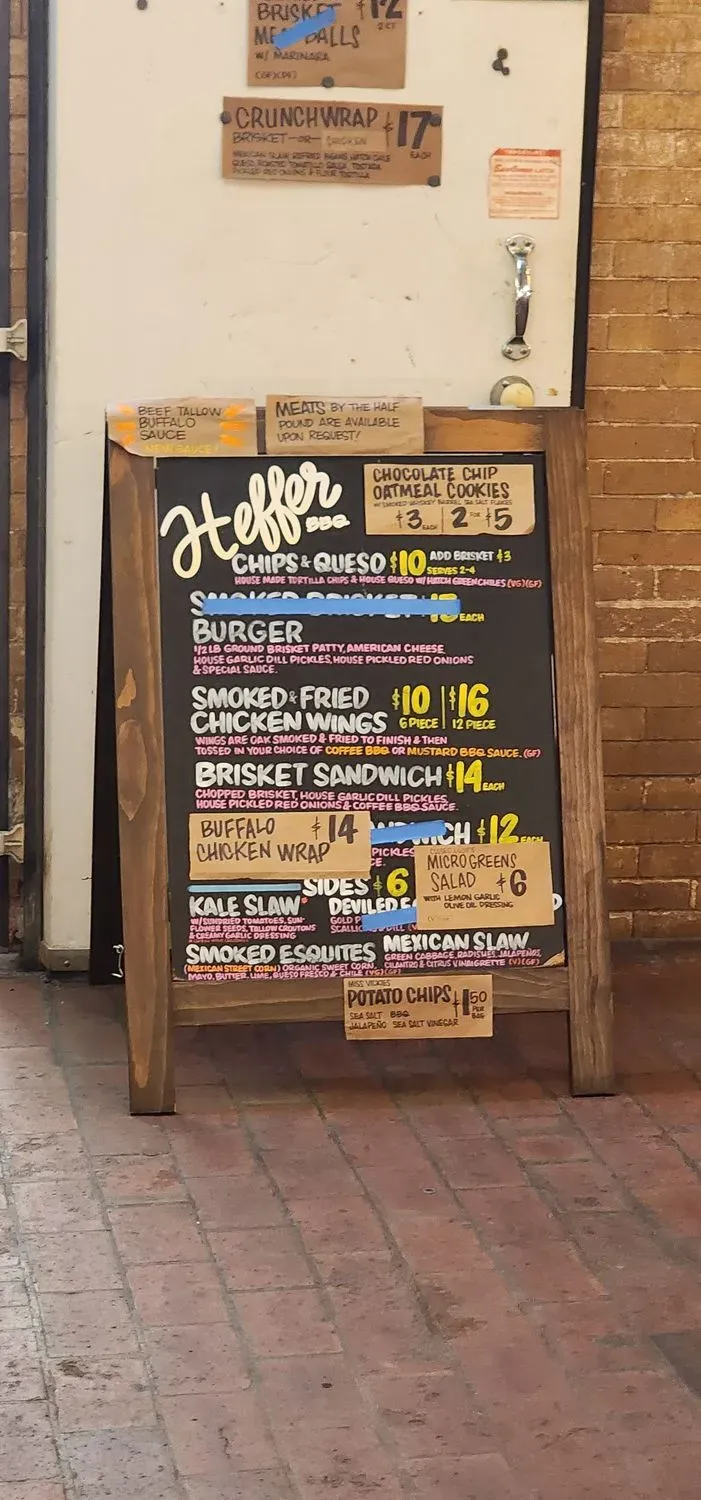 BRISKET $12
MEATBALLS 2 CT
W/ MARINARA
(GF)(DF)
CRUNCHWRAP $17
BRISKET -OR- CHICKEN EACH
MEXICAN SLAW, REFRIED BEANS, HATCH CHILE
QUESO, ROASTED TOMATILLO SALSA, TOSTADA,
PICKLED RED ONIONS & FLOUR TORTILLA
BEEF TALLOW
BUFFALO
SAUCE
NEW SAUCE!
MEATS BY THE HALF
POUND ARE AVAILABLE
UPON REQUEST!
Heffer
BBQ
CHOCOLATE CHIP
OATMEAL COOKIES
W/ SMOKED WHISKEY BARREL SEA SALT FLAKES
$3 EACH | 2 FOR $5
CHIPS & QUESO $10 ADD BRISKET $3
SERVES 2-4
HOUSE MADE TORTILLA CHIPS & HOUSE QUESO W/ HATCH GREEN CHILES (VG)(GF)
SMOKED BRISKET EACH
BURGER
1/2 LB GROUND BRISKET PATTY, AMERICAN CHEESE,
HOUSE GARLIC DILL PICKLES, HOUSE PICKLED RED ONIONS
& SPECIAL SAUCE.
SMOKED & FRIED $10 | $16
CHICKEN WINGS 6 PIECE | 12 PIECE
WINGS ARE OAK SMOKED & FRIED TO FINISH & THEN
TOSSED IN YOUR CHOICE OF COFFEE BBQ OR MUSTARD BBQ SAUCE. (GF)
BRISKET SANDWICH $14 EACH
CHOPPED BRISKET, HOUSE GARLIC DILL PICKLES,
HOUSE PICKLED RED ONIONS & COFFEE BBQ SAUCE.
BUFFALO $14
CHICKEN WRAP
CH $12 EACH
PICKLES
CE.
MICROGREENS
SALAD $6
WITH LEMON GARLIC
OLIVE OIL DRESSING
SIDES $6
KALE SLAW
W/ SUNDRIED TOMATOES, SUN-
FLOWER SEEDS, TALLOW CROUTONS
& CREAMY GARLIC DRESSING
DEVILED
GOLD P
SCALLIO DILL
SMOKED ESQUITES
(MEXICAN STREET CORN) ORGANIC SWEET CORN,
MAYO, BUTTER, LIME, QUESO FRESCO & CHILE (VG)(GF)
MEXICAN SLAW
GREEN CABBAGE, RADISHES, JALAPEÑOS,
CILANTRO & CITRUS VINAIGRETTE (V)(GF)
MISS VICKIES
POTATO CHIPS $1.50 PER BAG
SEA SALT BBQ
JALAPEÑO SEA SALT VINEGAR